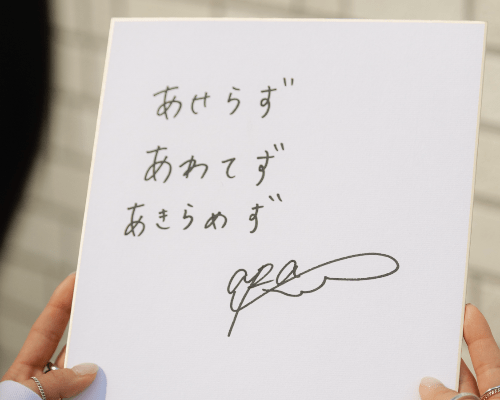 あせらず
あわてず
あきらめず